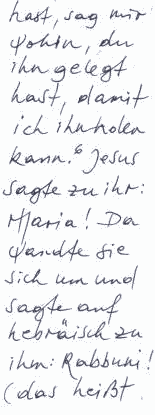 hast, sag mir
wohin, du
ihn gelegt
hast, damit
ich ihn holen
kann.⁶ Jesus
sagte zu ihr:
Maria! Da
wandte sie
sich um und
sagte auf
hebräisch zu
ihm: Rabbuni!
(das heißt